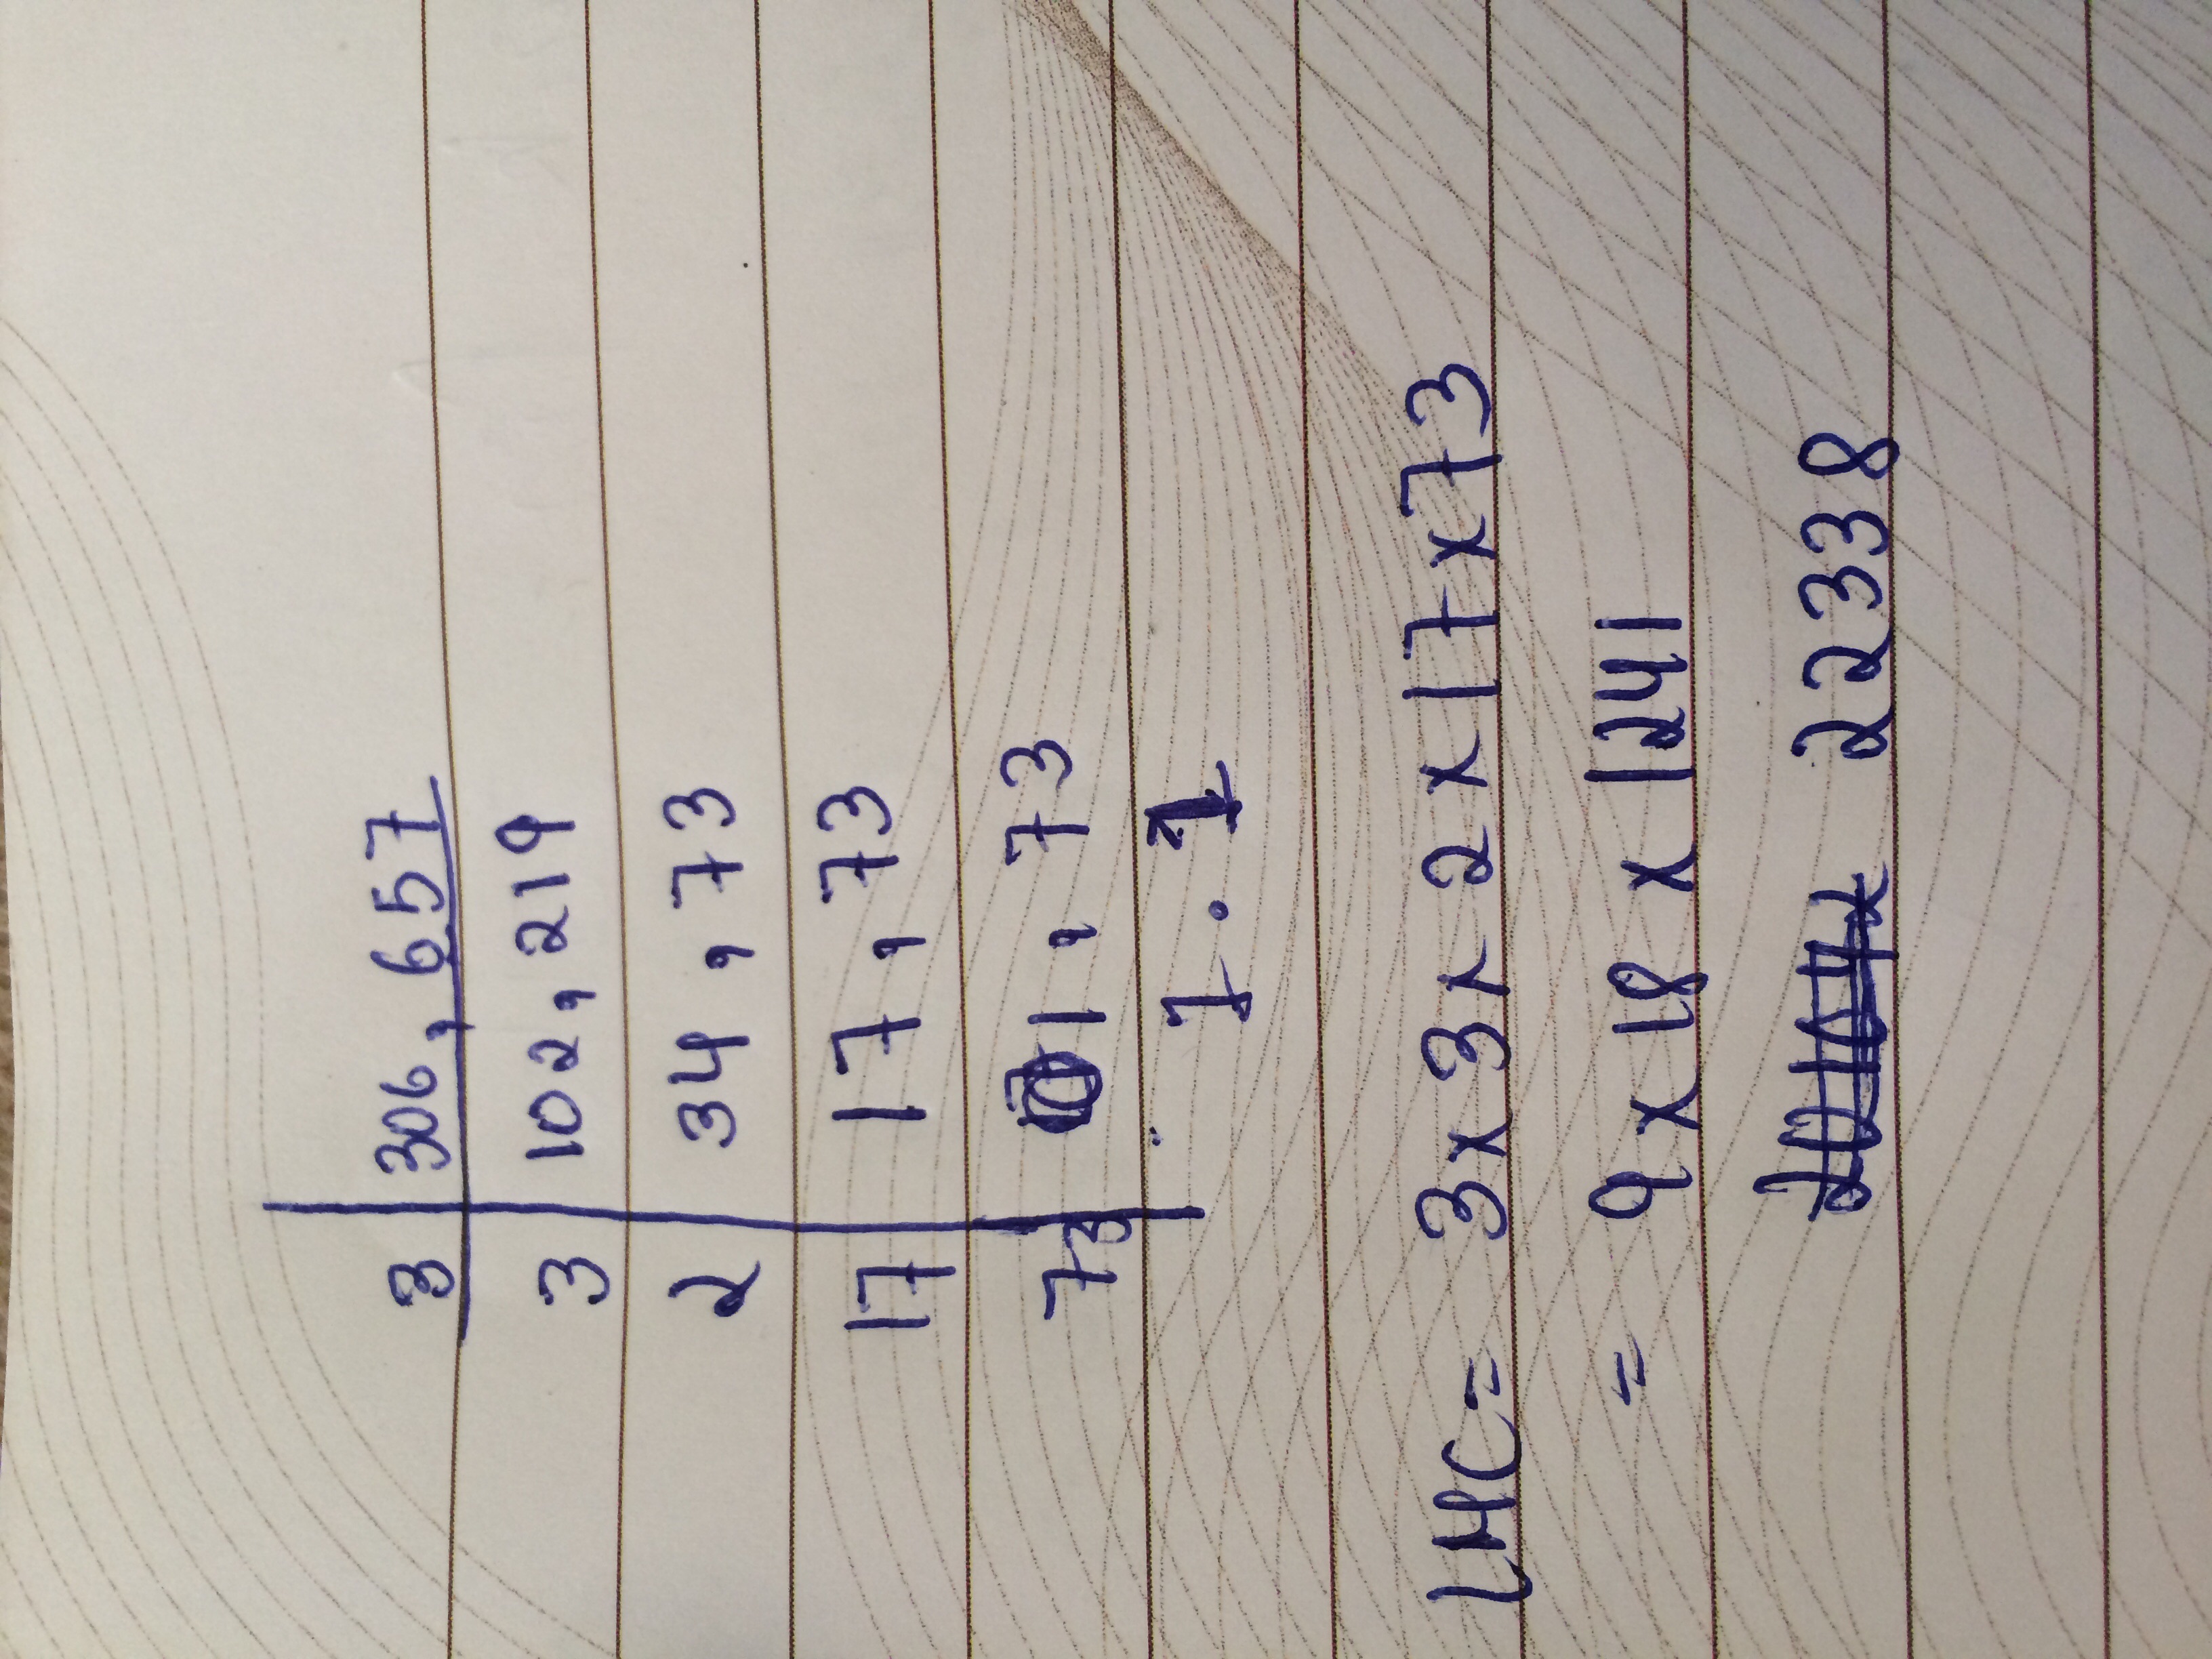 3 | 306, 657
3 | 102, 219
2 | 34, 73
17 | 17, 73
73 | 1, 73
1. 1
LMC= 3x3x2x17x73
= 9x18x1241
22338